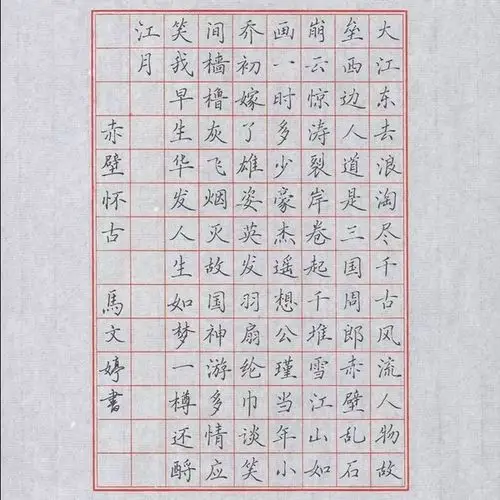 大江东去浪淘尽千古风流人物故
垒西边人道是三国周郎赤壁乱石
崩云惊涛裂岸卷起千堆雪江山如
画一时多少豪杰遥想公瑾当年小
乔初嫁了雄姿英发羽扇纶巾谈笑
间樯橹灰飞烟灭故国神游多情应
笑我早生华发人生如梦一樽还酹
江月
赤壁怀古 馬文婷書